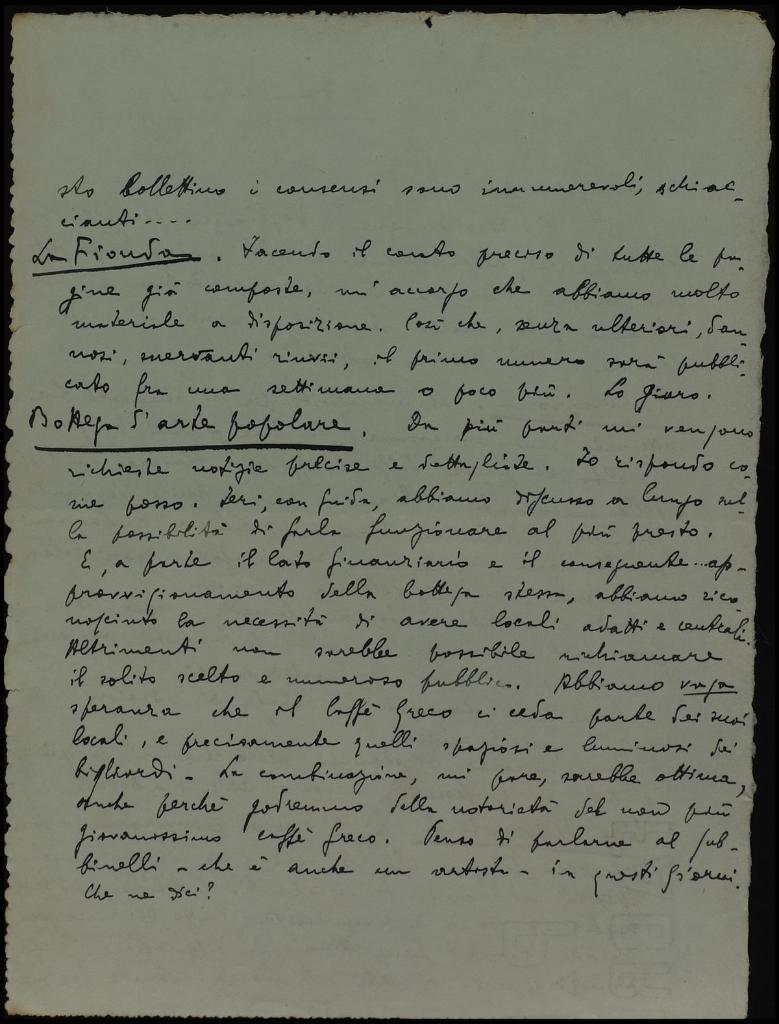 sto bollettino i consensi sono innumerevoli, schiac-
cianti....
La Fionda. Facendo il conto preciso di tutte le pa-
gine già composte, m'accorgo che abbiamo molto
materiale a disposizione. Così che, senza ulteriori, dan-
nosi, snervanti rinvii, il primo numero sarà pubbli-
cato fra una settimana o poco più. Lo giuro.
Bottega d'arte popolare. Da più parti mi vengono
richieste notizie precise e dettagliate. Io rispondo co-
me posso. Ieri, con Guido, abbiamo discusso a lungo sul-
la possibilità di farla funzionare al più presto.
E, a parte il lato finanziario e il conseguente... ap-
provvigionamento della bottega stessa, abbiamo rico-
nosciuto la necessità di avere locali adatti e centrali.
Altrimenti non sarebbe possibile richiamare
il solito scelto e numeroso pubblico. Abbiamo vaga
speranza che il Caffè Greco ci ceda parte dei suoi
locali, e precisamente quelli spaziosi e luminosi dei
bigliardi. La combinazione, mi pare, sarebbe ottima,
anche perchè godremmo della notorietà del non più
giovanissimo caffè Greco. Penso di parlarne al Gub-
binelli - che è anche un artista - in questi giorni.
Che ne dici?